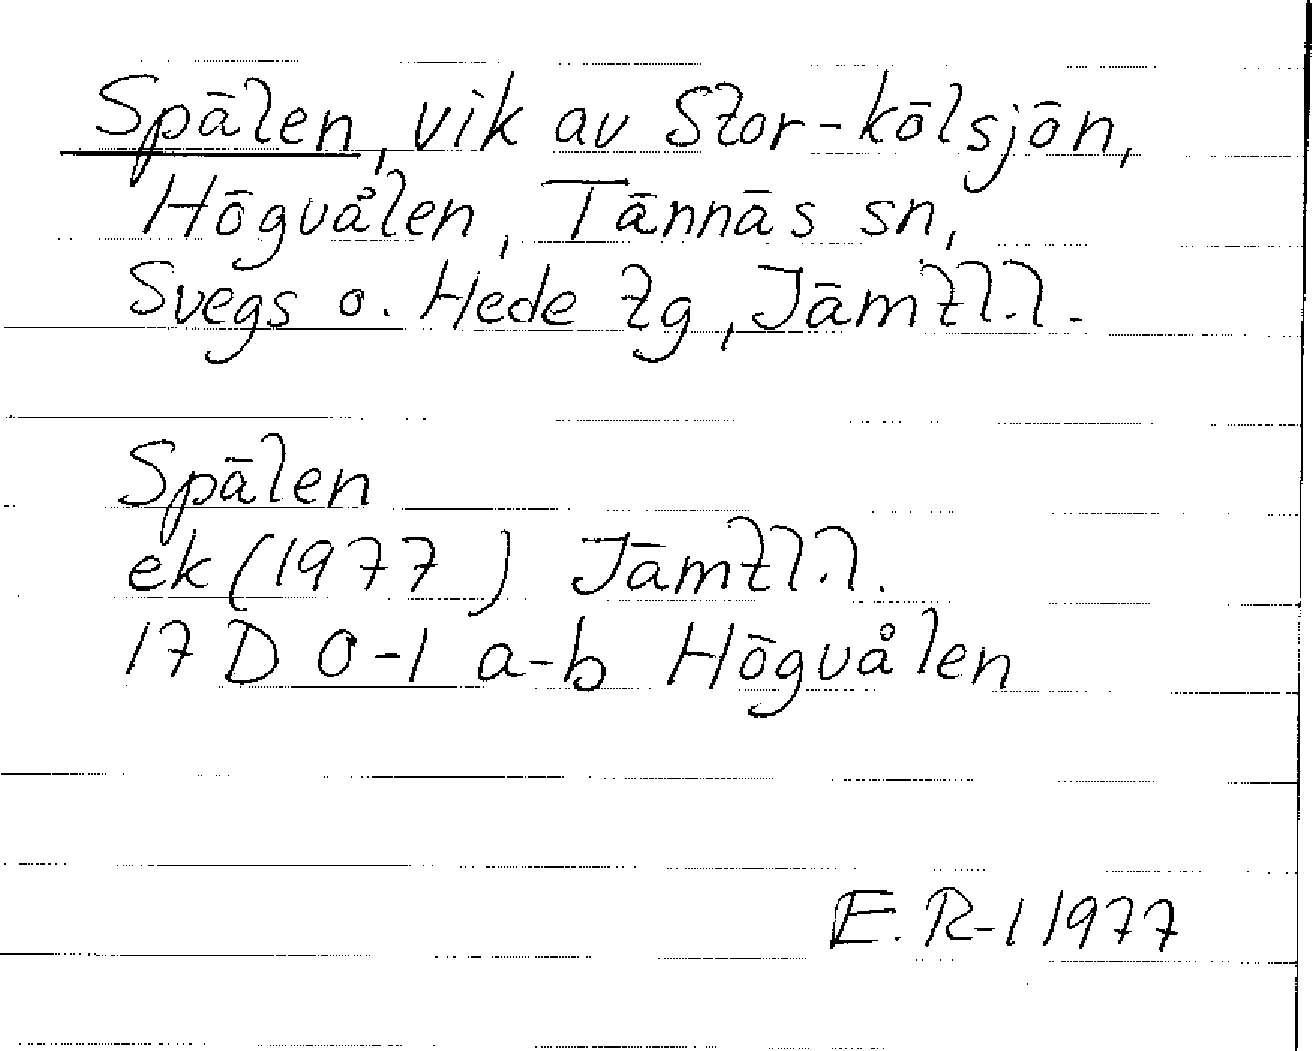 Spälen, vik av Stor-kölsjön,
Högvålen, Tännäs sn,
Svegs o. Hede tg, Jämtl.l.
Spälen
ek (1977) Jämtl.l.
17 D 0-1 a-b Högvålen
E. R-l 1977